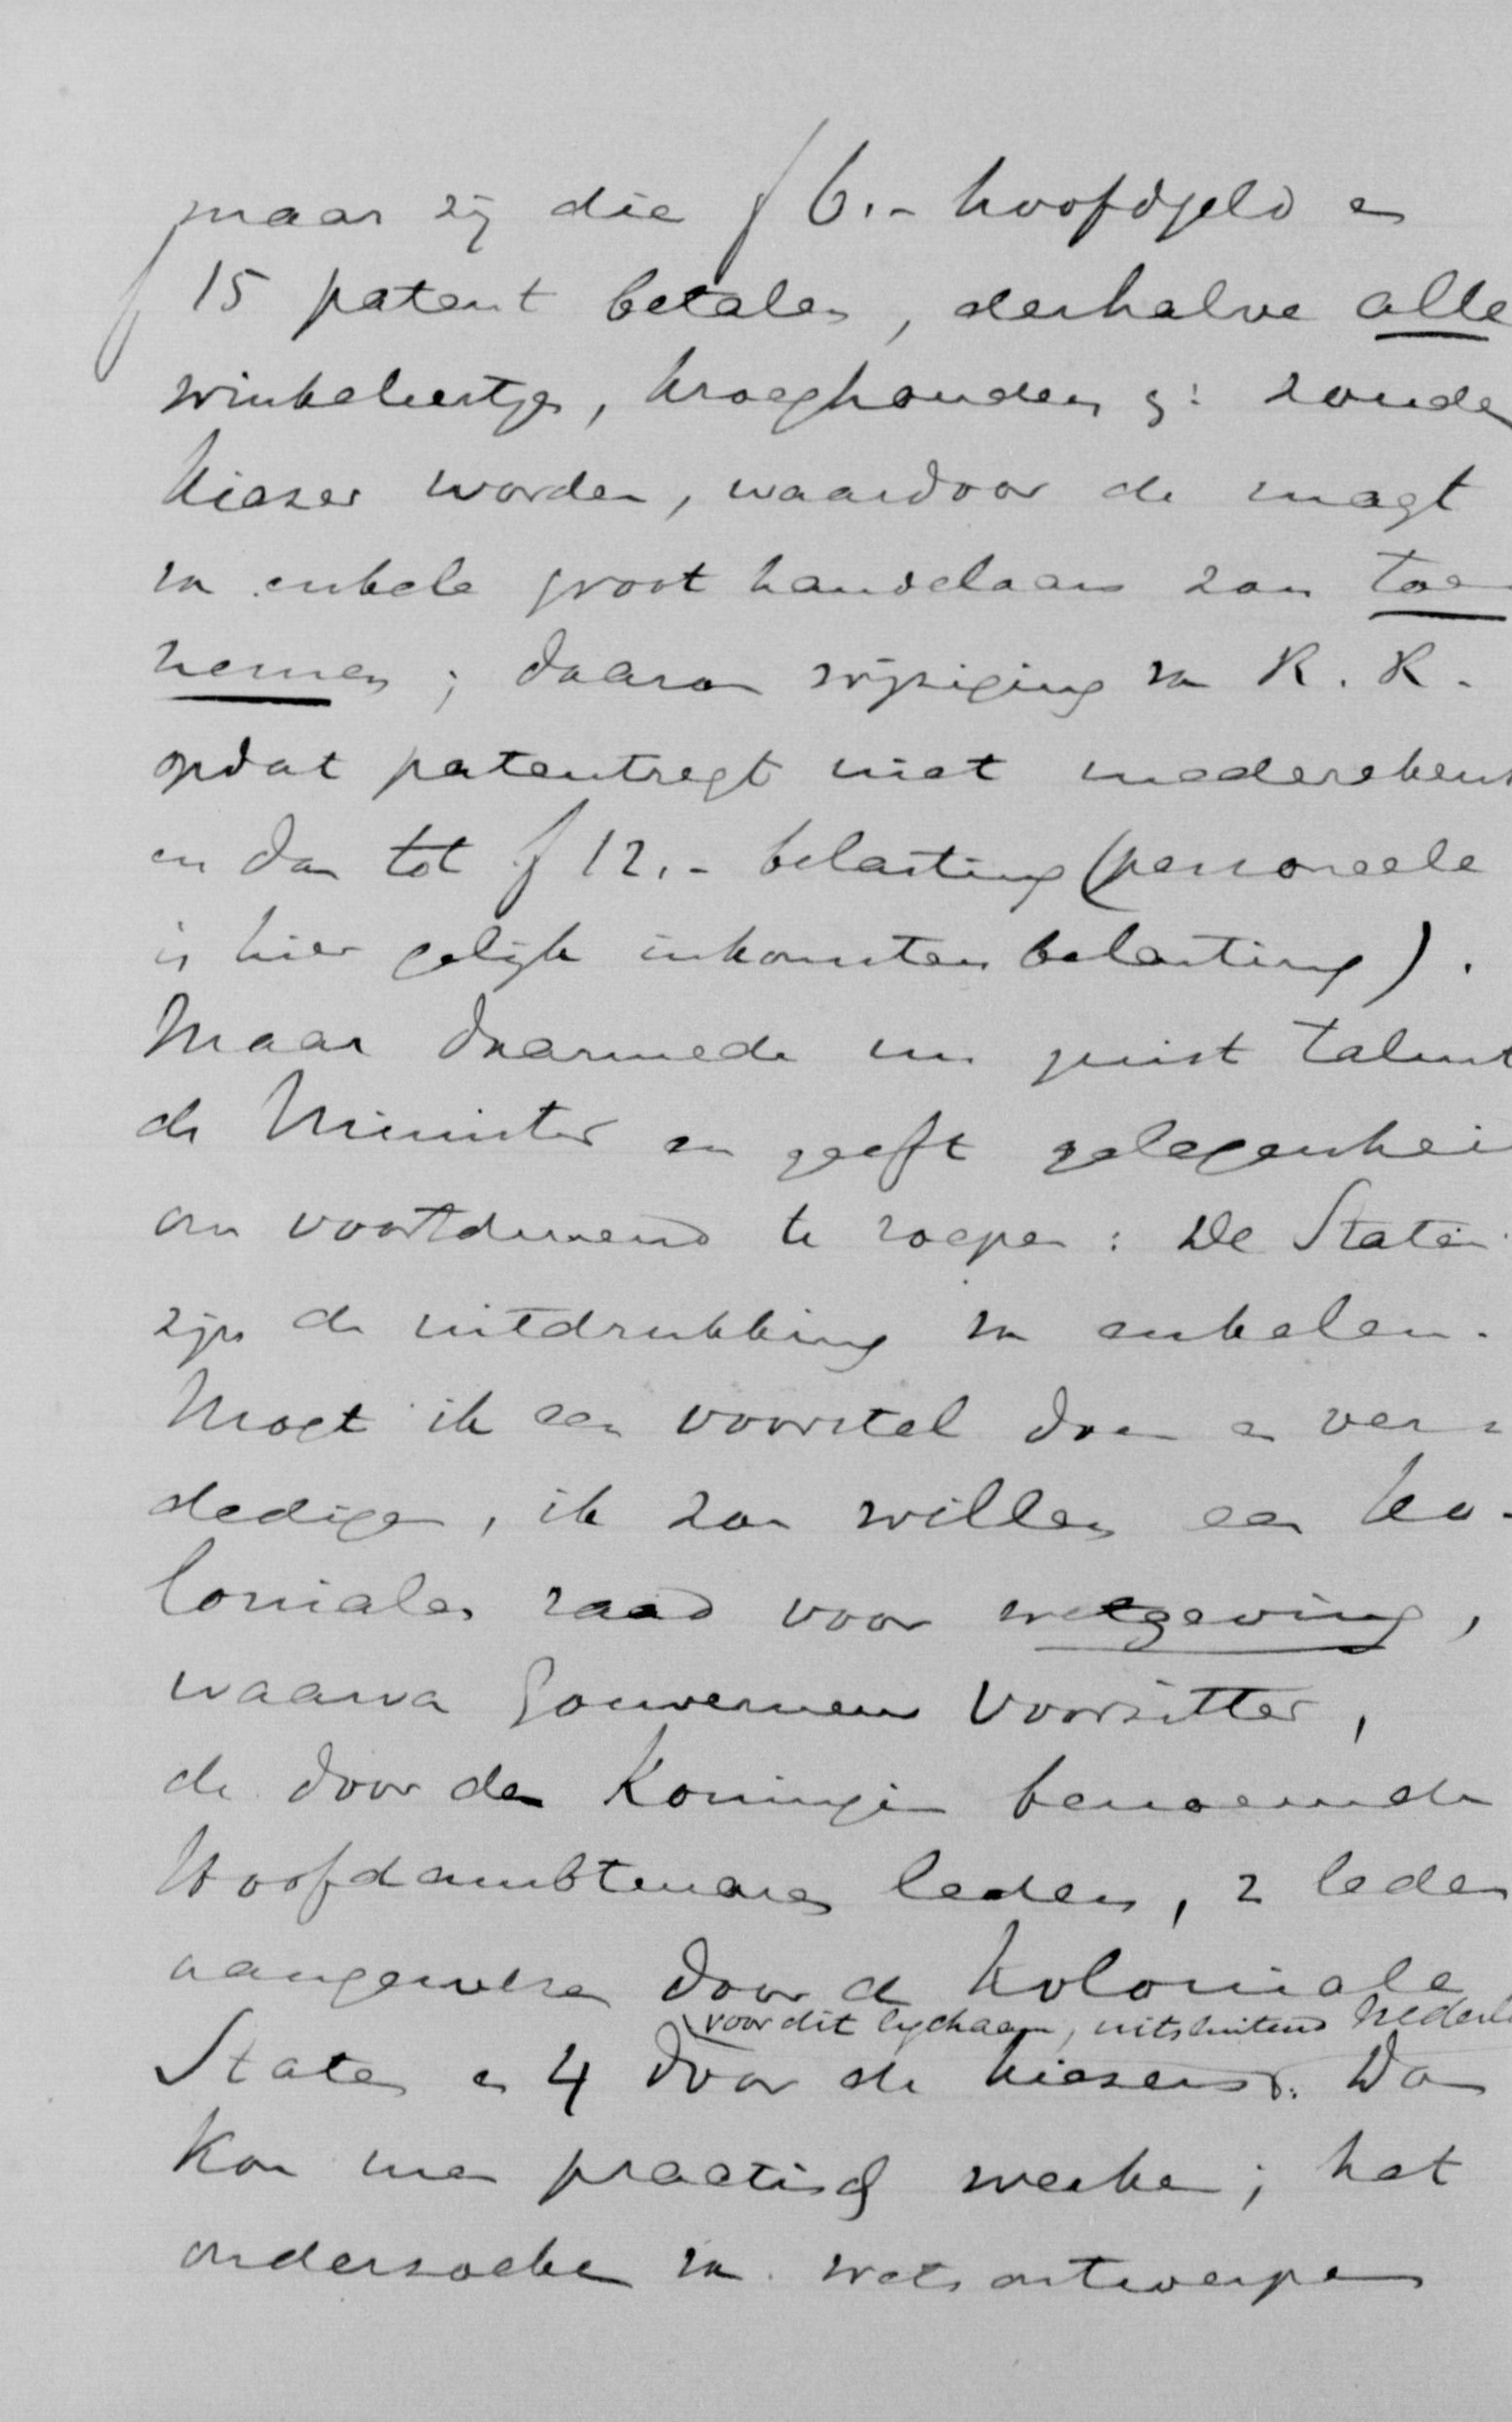 maar zij die f 6.- hoofdgeld en
f 15 patent betalen, derhalve alle
winkeliertjes, kroeghouders &: zouden
kiezer worden, waardoor de magt
van enkele groot handelaars zou toe
nemen; daarom wijziging van K. R.
opdat patentregt niet mederekent
en dan tot f 12.- belasting (personeele
is hier gelijk inkomsten belasting).
Maar daarmede nu juist talmt
de Minister en geeft gelegenheid
om voortdurend te roepen: De Staten
zijn de uitdrukking van enkelen.
Mogt ik een voorstel doen en ver-
dedigen, ik zou willen een ko-
lonialen raad voor wetgeving,
waarvan Gouverneur Voorzitter,
de door de Koningin benoemde
Hoofdambtenaren leden, 2 leden
aangewezen door de Koloniale
voor dit lychaam, uitsluitend Nederl
Staten en 4 door de kiezers. Dan
kon men practisch werken; het
onderzoeken van wetsontwerpen